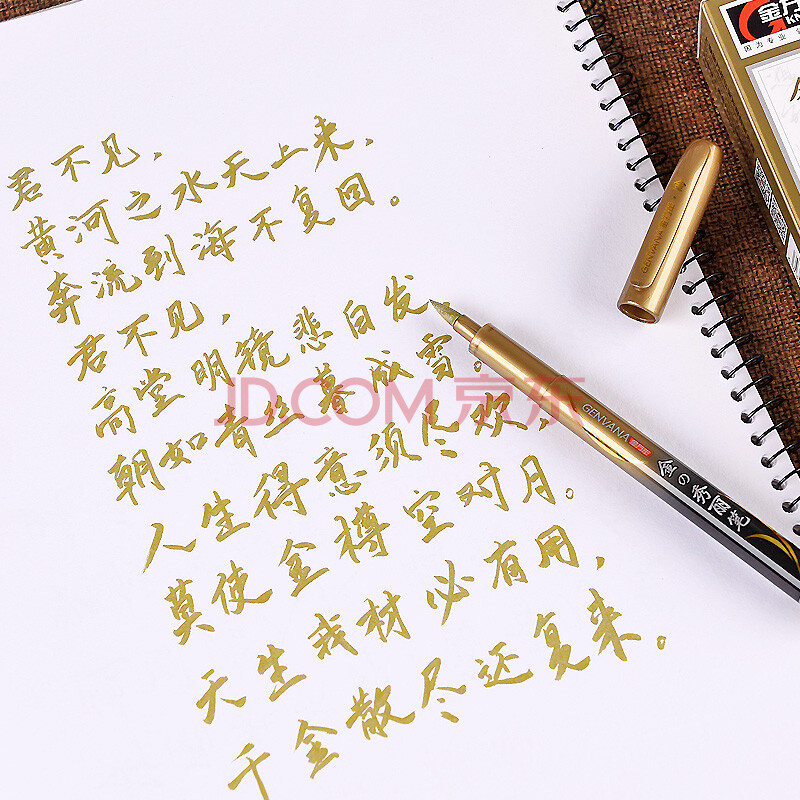 君不见，
黄河之水天上来，
奔流到海不复回。
君不见，
高堂明镜悲白发
朝如青丝暮成雪。
人生得意须尽欢，
莫使金樽空对月。
天生我材必有用，
千金散尽还复来。
JD.COM 京东
GENVANA
金の秀丽笔
GENVANA
金万
因为专业